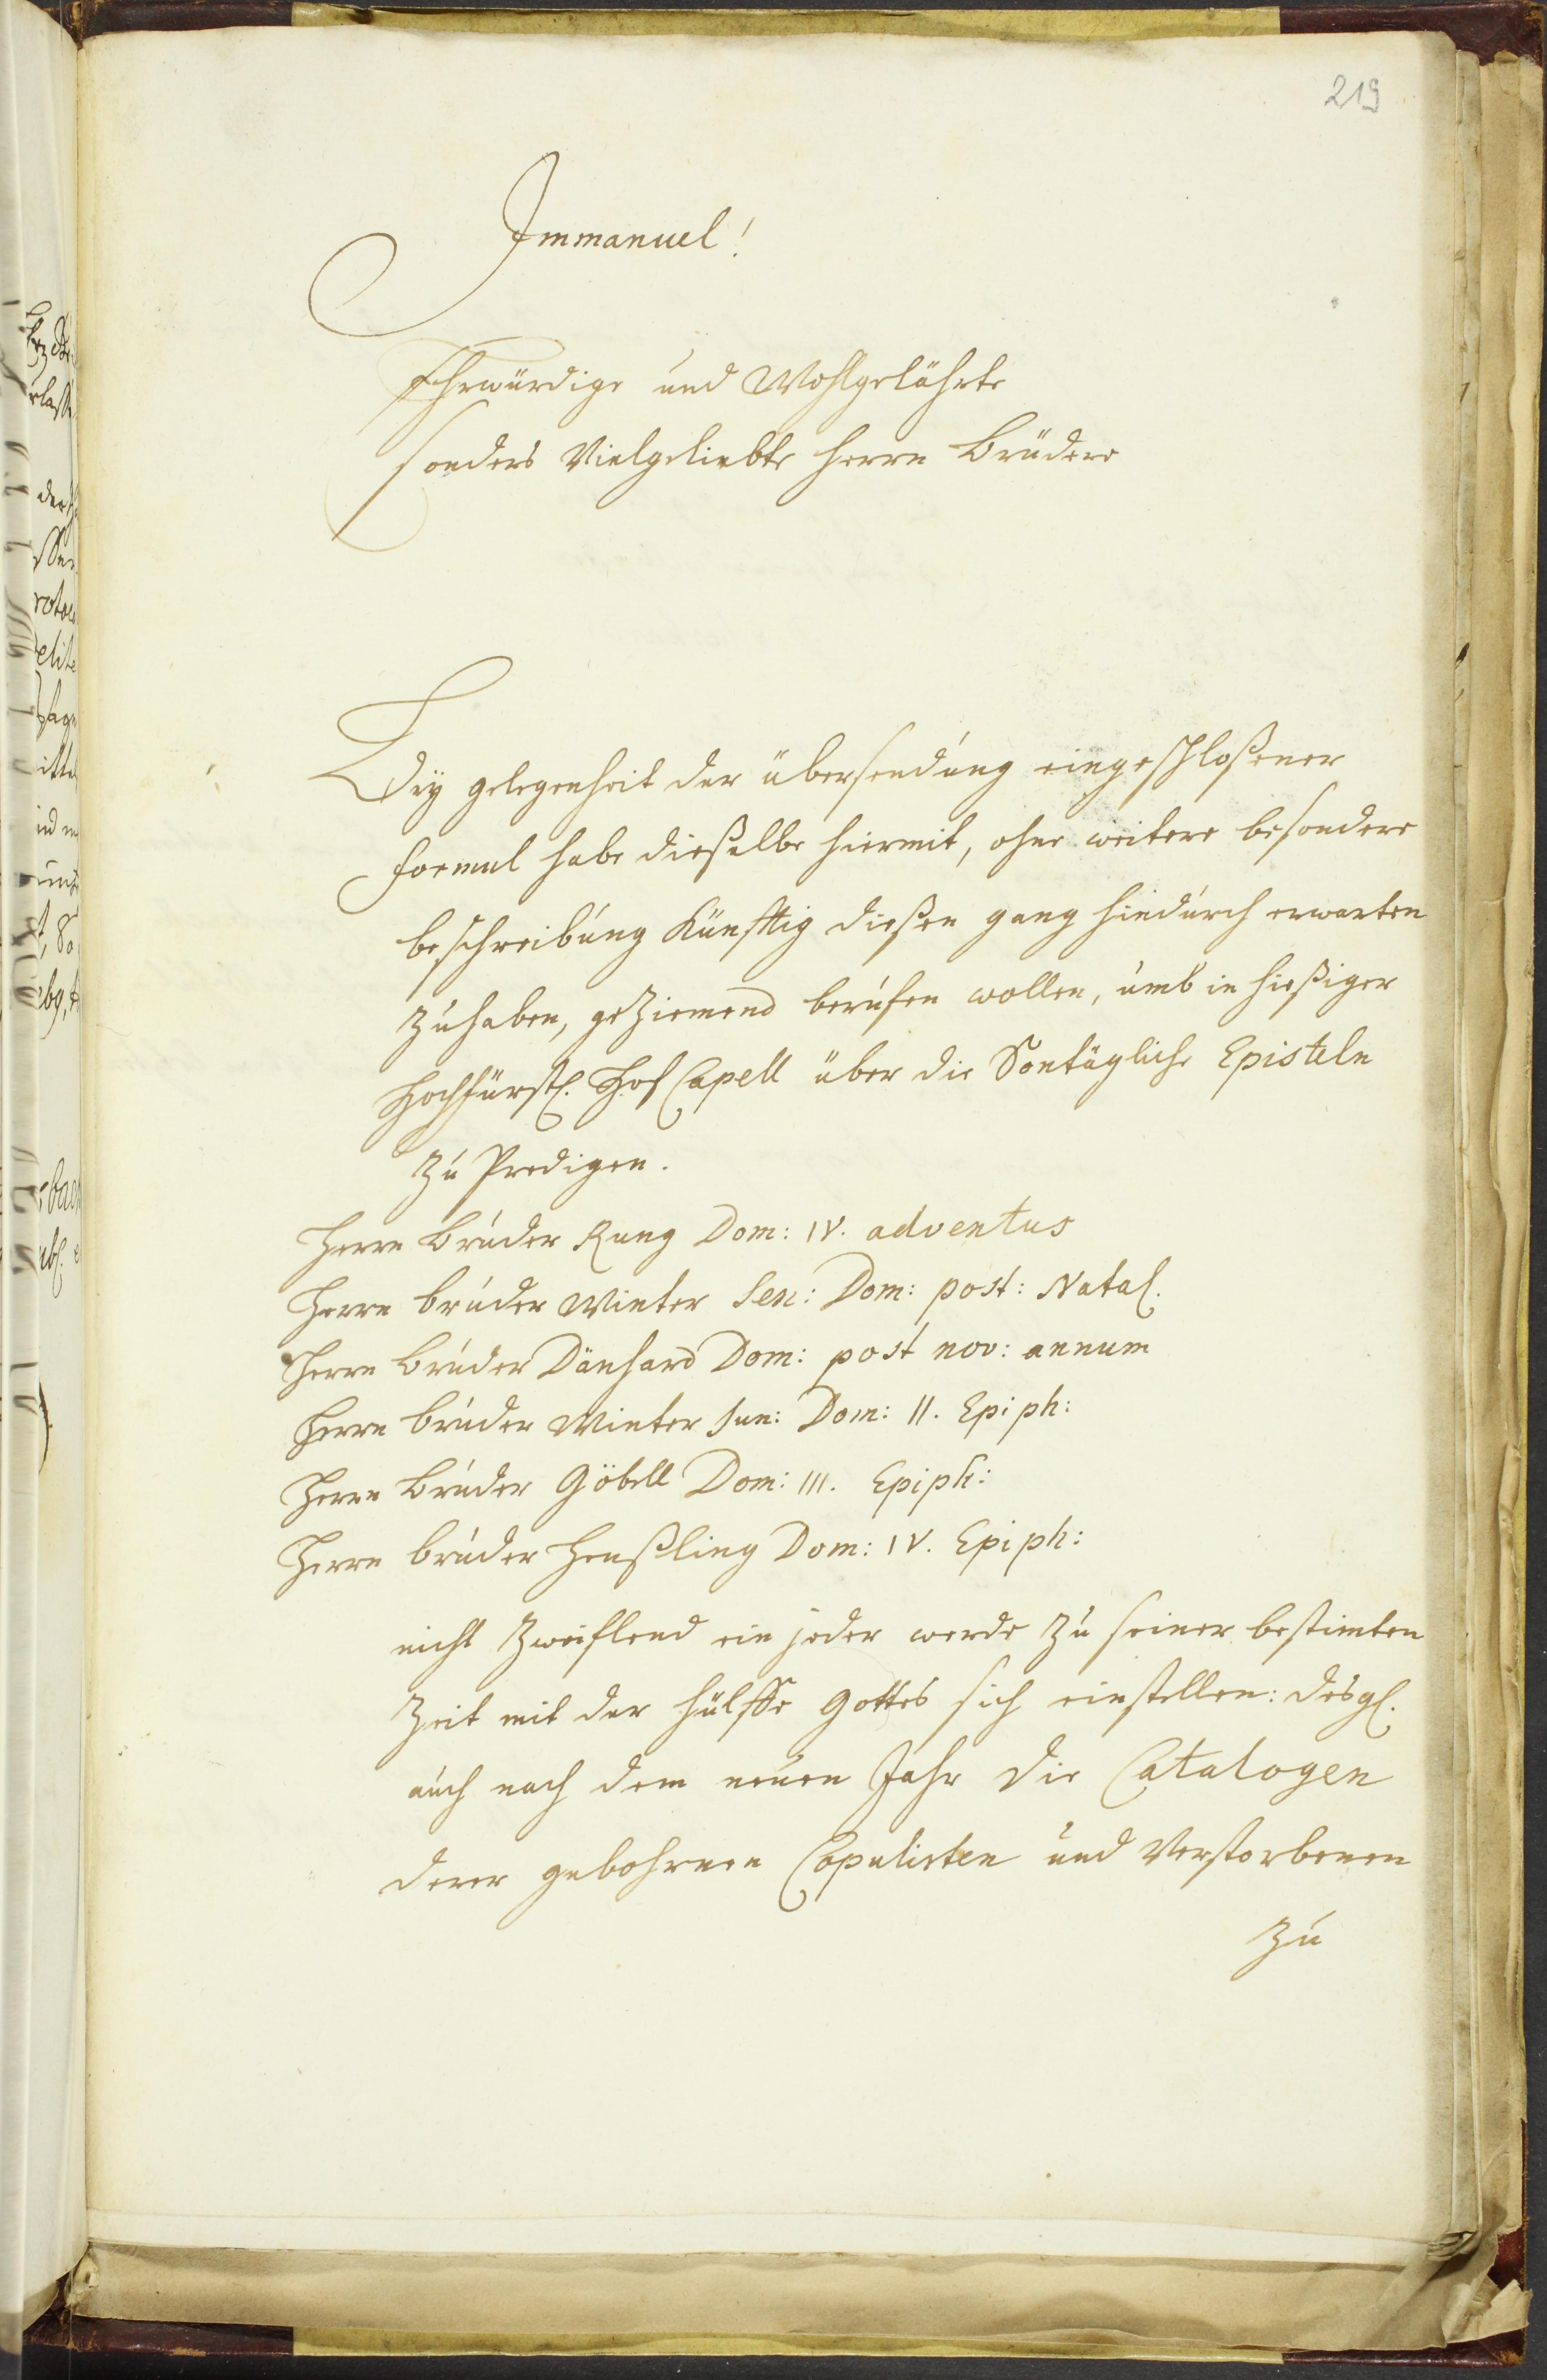 219
Immanuel!
Ehrwürdige und Wohlgelährte
sonders Vielgeliebte Herrn Brüdere
Bey gelegenheit der übersendung eingeschloßener
formul habe dieselbe hiermit, ohne weitere besondere
beschreibung künfftig dießen gang hindurch erwarten
zu haben, geziemend berufen wollen, umb in hießiger
Hochfürstl. Hof Capell über die Sontägliche Episteln
zu Predigen.
Herrn Bruder Rung Dom: IV. adventus
Herrn bruder Winter Sen: Dom: post: Natal.
Herrn Bruder Dänhard Dom: post nov: annum
Herrn bruder Winter Jun: Dom: II. Epiph:
Herrn Bruder Göbell Dom: III. Epiph:
Herrn bruder Henßling Dom: IV. Epiph:
nicht Zweiflend ein jeder werde zu seiner bestimten
Zeit mit der hülffe Gottes sich einstellen: desgl.
auch nach dem neuen Jahr die Catalogen
derer gebohrnen Copulirten und Verstorbenen
zu